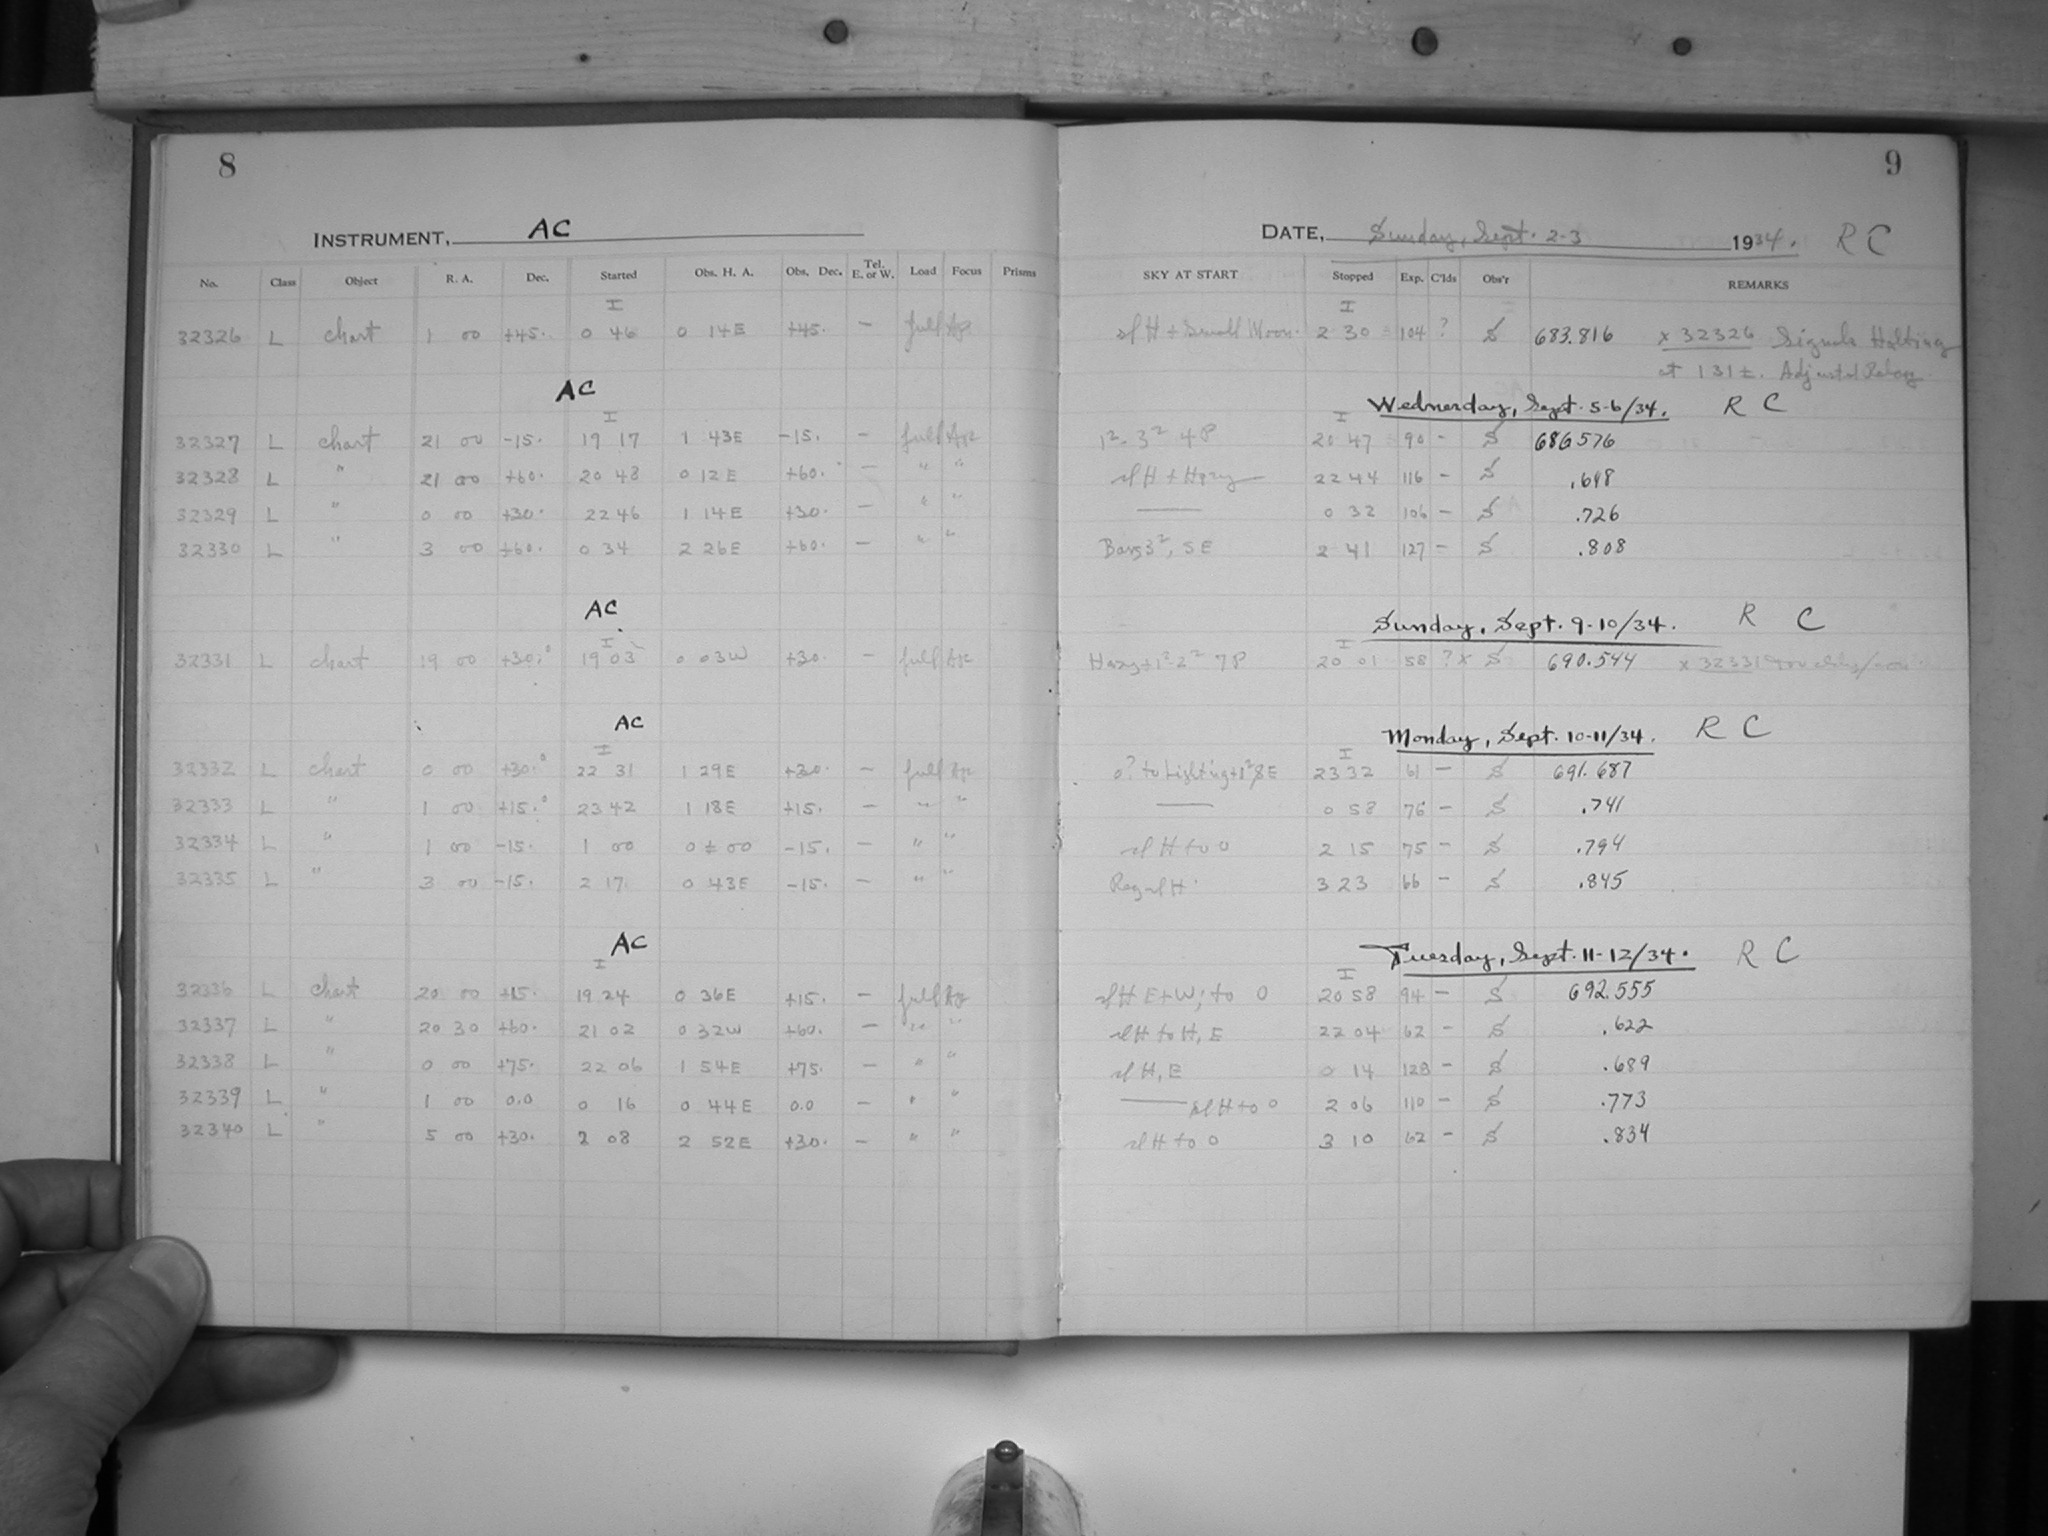 8
INSTRUMENT, AC
No. Class Object R. A. Dec. Started Obs. H. A. Obs. Dec. Tel. E. or W. Load Focus Prisms
I
32326 L chart 1 00 +45. 0 46 0 14E +45. — full
AC
I
32327 L chart 21 00 -15. 19 17 1 43E -15. — full
32328 L " 21 00 +60. 20 48 0 12E +60. — " "
32329 L " 0 00 +30. 22 46 1 14E +30. — " "
32330 L " 3 00 +60. 0 34 2 26E +60. — " "
AC
I
32331 L chart 19 00 +30. 19 03 0 03W +30. — full
AC
I
32332 L chart 0 00 +30. 22 31 1 29E +30. — full
32333 L " 1 00 +15. 23 42 1 18E +15. — " "
32334 L " 1 00 -15. 1 00 0 ± 00 -15. — " "
32335 L " 3 00 -15. 2 17 0 43E -15. — " "
AC
I
32336 L chart 20 00 +15. 19 24 0 36E +15. — full
32337 L " 20 30 +60. 21 02 0 32W +60. — " "
32338 L " 0 00 +75. 22 06 1 54E +75. — " "
32339 L " 1 00 0.0 0 16 0 44E 0.0 — " "
32340 L " 5 00 +30. 2 08 2 52E +30. — " "
9
DATE, Sunday, Sept. 2-3 1934. R C
SKY AT START Stopped Exp. C'lds Obs'r REMARKS
I
sl H + Small Moon. 2 30 104 ? S 683.816 x 32326 Signals Halting
at 1 31 ±. Adjusted Relay
Wednesday, Sept. 5-6/34. R C
I
1² - 3² 4P 20 47 90 - S 686576
sl H + Hazy 22 44 116 - S .648
—— 0 32 106 - S .726
Bars 3², SE 2 41 127 - S .808
Sunday, Sept. 9-10/34. R C
I
Hazy + 1²-2² 7P 20 01 58 ? x S 690.544 x 32331
Monday, Sept. 10-11/34. R C
I
0? to 23 32 61 - S 691.687
—— 0 58 76 - S .741
sl H to 0 2 15 75 - S .794
sl H 3 23 66 - S .845
Tuesday, Sept. 11-12/34. R C
I
sl H E+W; to 0 20 58 94 - S 692.555
sl H to H, E 22 04 62 - S .622
sl H, E 0 14 128 - S .689
—— sl H to 0 2 06 110 - S .773
sl H to 0 3 10 62 - S .834